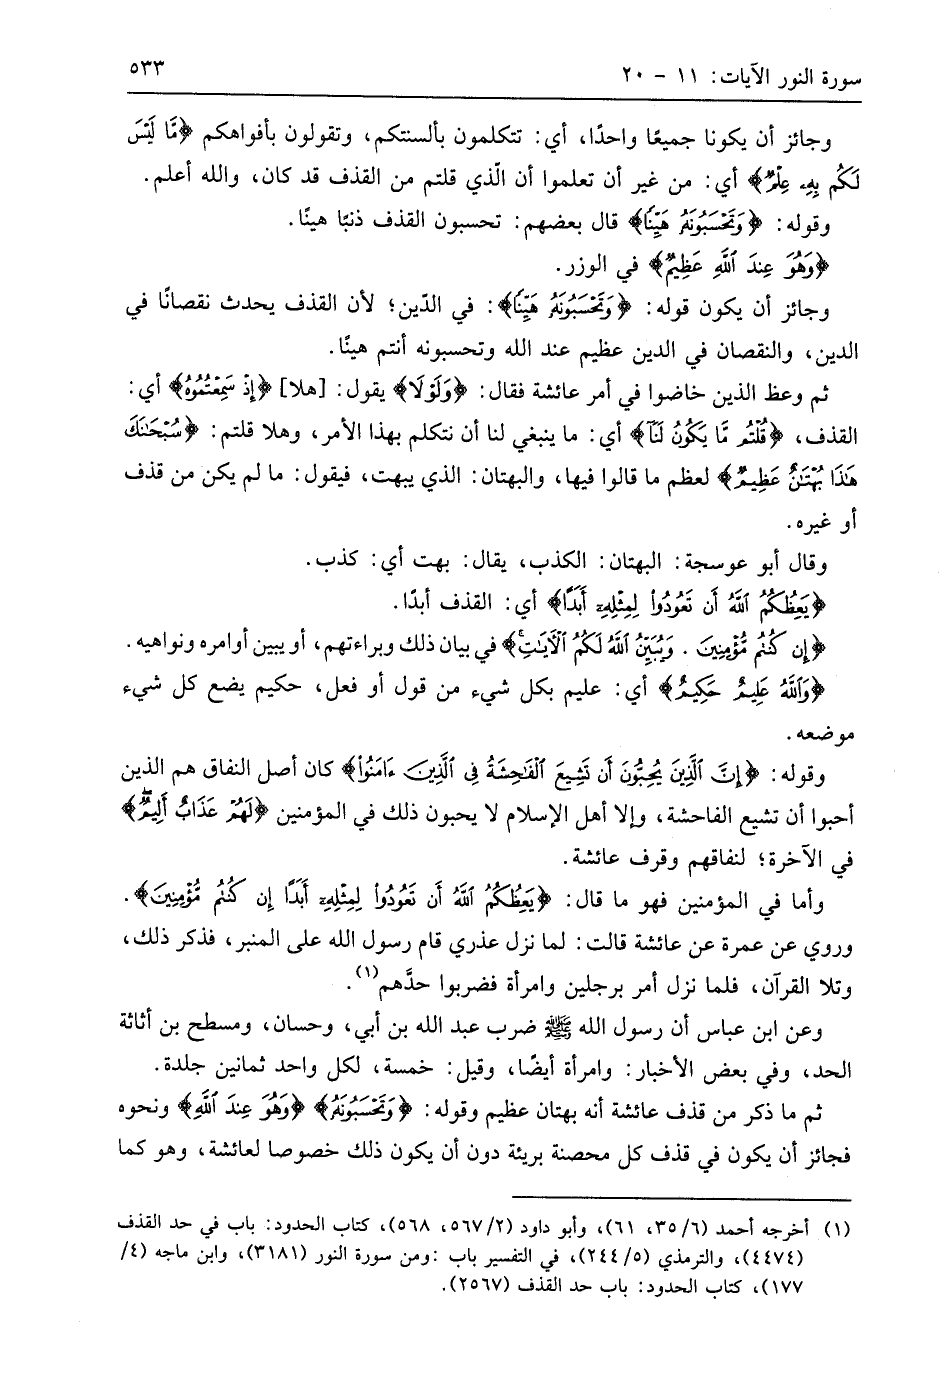 سورة النور الآيات: ١١ - ٢٠
٥٣٣
وجائز أن يكونا جميعًا واحدًا، أي: تتكلمون بألسنتكم، وتقولون بأفواهكم ﴿مَّا لَيْسَ
لَكُم بِهِۦ عِلْمٌ﴾ أي: من غير أن تعلموا أن الّذي قلتم من القذف قد كان، والله أعلم.
وقوله: ﴿وَتَحْسَبُونَهُۥ هَيِّنًا﴾ قال بعضهم: تحسبون القذف ذنبًا هينًا.
﴿وَهُوَ عِندَ ٱللَّهِ عَظِيمٌ﴾ في الوزر.
وجائز أن يكون قوله: ﴿وَتَحْسَبُونَهُۥ هَيِّنًا﴾: في الدّين؛ لأن القذف يحدث نقصانًا في
الدين، والنقصان في الدين عظيم عند الله وتحسبونه أنتم هينًا.
ثم وعظ الذين خاضوا في أمر عائشة فقال: ﴿وَلَوْلَا﴾ يقول: [هلا] ﴿إِذْ سَمِعْتُمُوهُ﴾ أي:
القذف، ﴿قُلْتُم مَّا يَكُونُ لَنَآ﴾ أي: ما ينبغي لنا أن نتكلم بهذا الأمر، وهلا قلتم: ﴿سُبْحَٰنَكَ
هَٰذَا بُهْتَٰنٌ عَظِيمٌ﴾ لعظم ما قالوا فيها، والبهتان: الذي يبهت، فيقول: ما لم يكن من قذف
أو غيره.
وقال أبو عوسجة: البهتان: الكذب، يقال: بهت أي: كذب.
﴿يَعِظُكُمُ ٱللَّهُ أَن تَعُودُوا۟ لِمِثْلِهِۦٓ أَبَدًا﴾ أي: القذف أبدًا.
﴿إِن كُنتُم مُّؤْمِنِينَ . وَيُبَيِّنُ ٱللَّهُ لَكُمُ ٱلْأَيَٰتِ ۚ﴾ في بيان ذلك وبراءتهم، أو يبين أوامره ونواهيه.
﴿وَٱللَّهُ عَلِيمٌ حَكِيمٌ﴾ أي: عليم بكل شيء من قول أو فعل، حكيم يضع كل شيء
موضعه.
وقوله: ﴿إِنَّ ٱلَّذِينَ يُحِبُّونَ أَن تَشِيعَ ٱلْفَٰحِشَةُ فِى ٱلَّذِينَ ءَامَنُوا۟﴾ كان أصل النفاق هم الذين
أحبوا أن تشيع الفاحشة، وإلا أهل الإسلام لا يحبون ذلك في المؤمنين ﴿لَهُمْ عَذَابٌ أَلِيمٌ﴾
في الآخرة؛ لنفاقهم وقرف عائشة.
وأما في المؤمنين فهو ما قال: ﴿يَعِظُكُمُ ٱللَّهُ أَن تَعُودُوا۟ لِمِثْلِهِۦٓ أَبَدًا إِن كُنتُم مُّؤْمِنِينَ﴾.
وروي عن عمرة عن عائشة قالت: لما نزل عذري قام رسول الله على المنبر، فذكر ذلك،
وتلا القرآن، فلما نزل أمر برجلين وامرأة فضربوا حدَّهم(١).
وعن ابن عباس أن رسول الله ﷺ ضرب عبد الله بن أبي، وحسان، ومسطح بن أثاثة
الحد، وفي بعض الأخبار: وامرأة أيضًا، وقيل: خمسة، لكل واحد ثمانين جلدة.
ثم ما ذكر من قذف عائشة أنه بهتان عظيم وقوله: ﴿وَتَحْسَبُونَهُۥ﴾ ﴿وَهُوَ عِندَ ٱللَّهِ﴾ ونحوه
فجائز أن يكون في قذف كل محصنة بريئة دون أن يكون ذلك خصوصا لعائشة، وهو كما
(١) أخرجه أحمد (٦/ ٣٥، ٦١)، وأبو داود (٢/ ٥٦٧، ٥٦٨)، كتاب الحدود: باب في حد القذف
(٤٤٧٤)، والترمذي (٥/ ٢٤٤)، في التفسير باب :ومن سورة النور (٣١٨١)، وابن ماجه (٤/
١٧٧)، كتاب الحدود: باب حد القذف (٢٥٦٧).